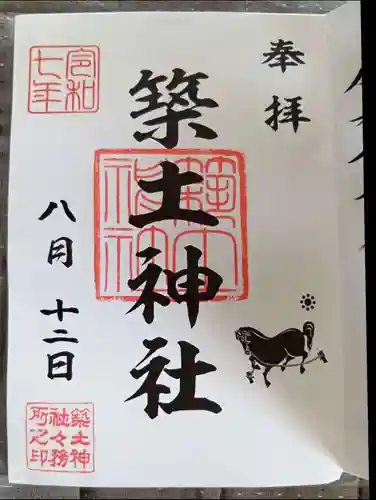 奉拝
築土神社
築土神社
令和
七年
八月十二日
築土神
社々務
所之印